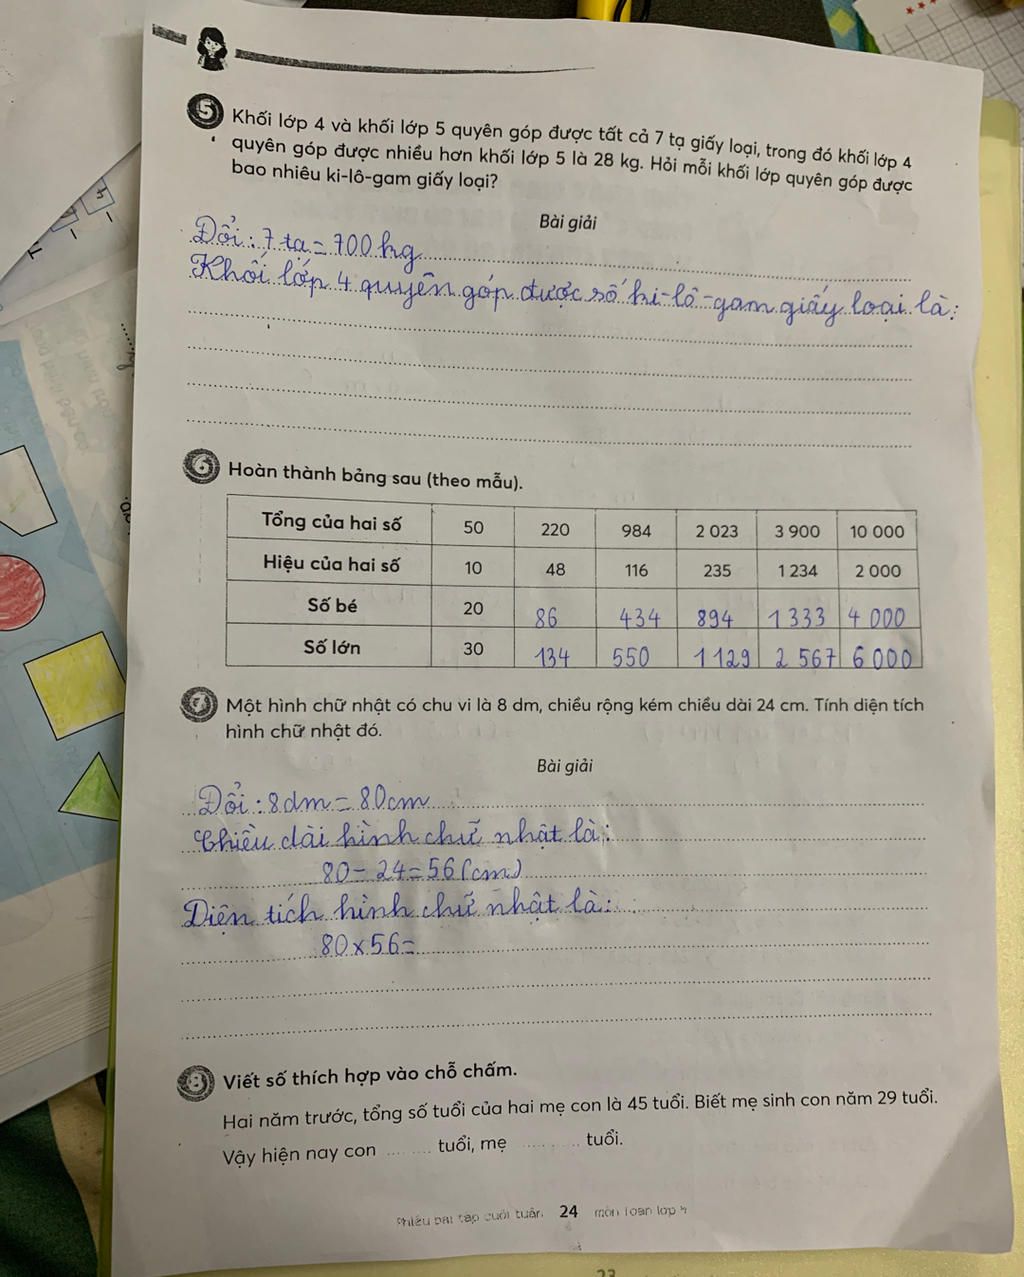 5 Khối lớp 4 và khối lớp 5 quyên góp được tất cả 7 tạ giấy loại, trong đó khối lớp 4
quyên góp được nhiều hơn khối lớp 5 là 28 kg. Hỏi mỗi khối lớp quyên góp được
bao nhiêu ki-lô-gam giấy loại?
Bài giải
Đổi: 7 tạ = 700 kg
Khối lớp 4 quyên góp được số ki-lô-gam giấy loại là:
6 Hoàn thành bảng sau (theo mẫu).
Tổng của hai số 50 220 984 2 023 3 900 10 000
Hiệu của hai số 10 48 116 235 1 234 2 000
Số bé 20 86 434 894 1 333 4 000
Số lớn 30 134 550 1 129 2 567 6 000
7 Một hình chữ nhật có chu vi là 8 dm, chiều rộng kém chiều dài 24 cm. Tính diện tích
hình chữ nhật đó.
Bài giải
Đổi: 8dm = 80cm
Chiều dài hình chữ nhật là:
80 - 24 = 56 (cm)
Diện tích hình chữ nhật là:
80 x 56 =
8 Viết số thích hợp vào chỗ chấm.
Hai năm trước, tổng số tuổi của hai mẹ con là 45 tuổi. Biết mẹ sinh con năm 29 tuổi.
Vậy hiện nay con ........ tuổi, mẹ ........... tuổi.
Phiếu bài tập cuối tuần 24 môn Toán lớp 4
23